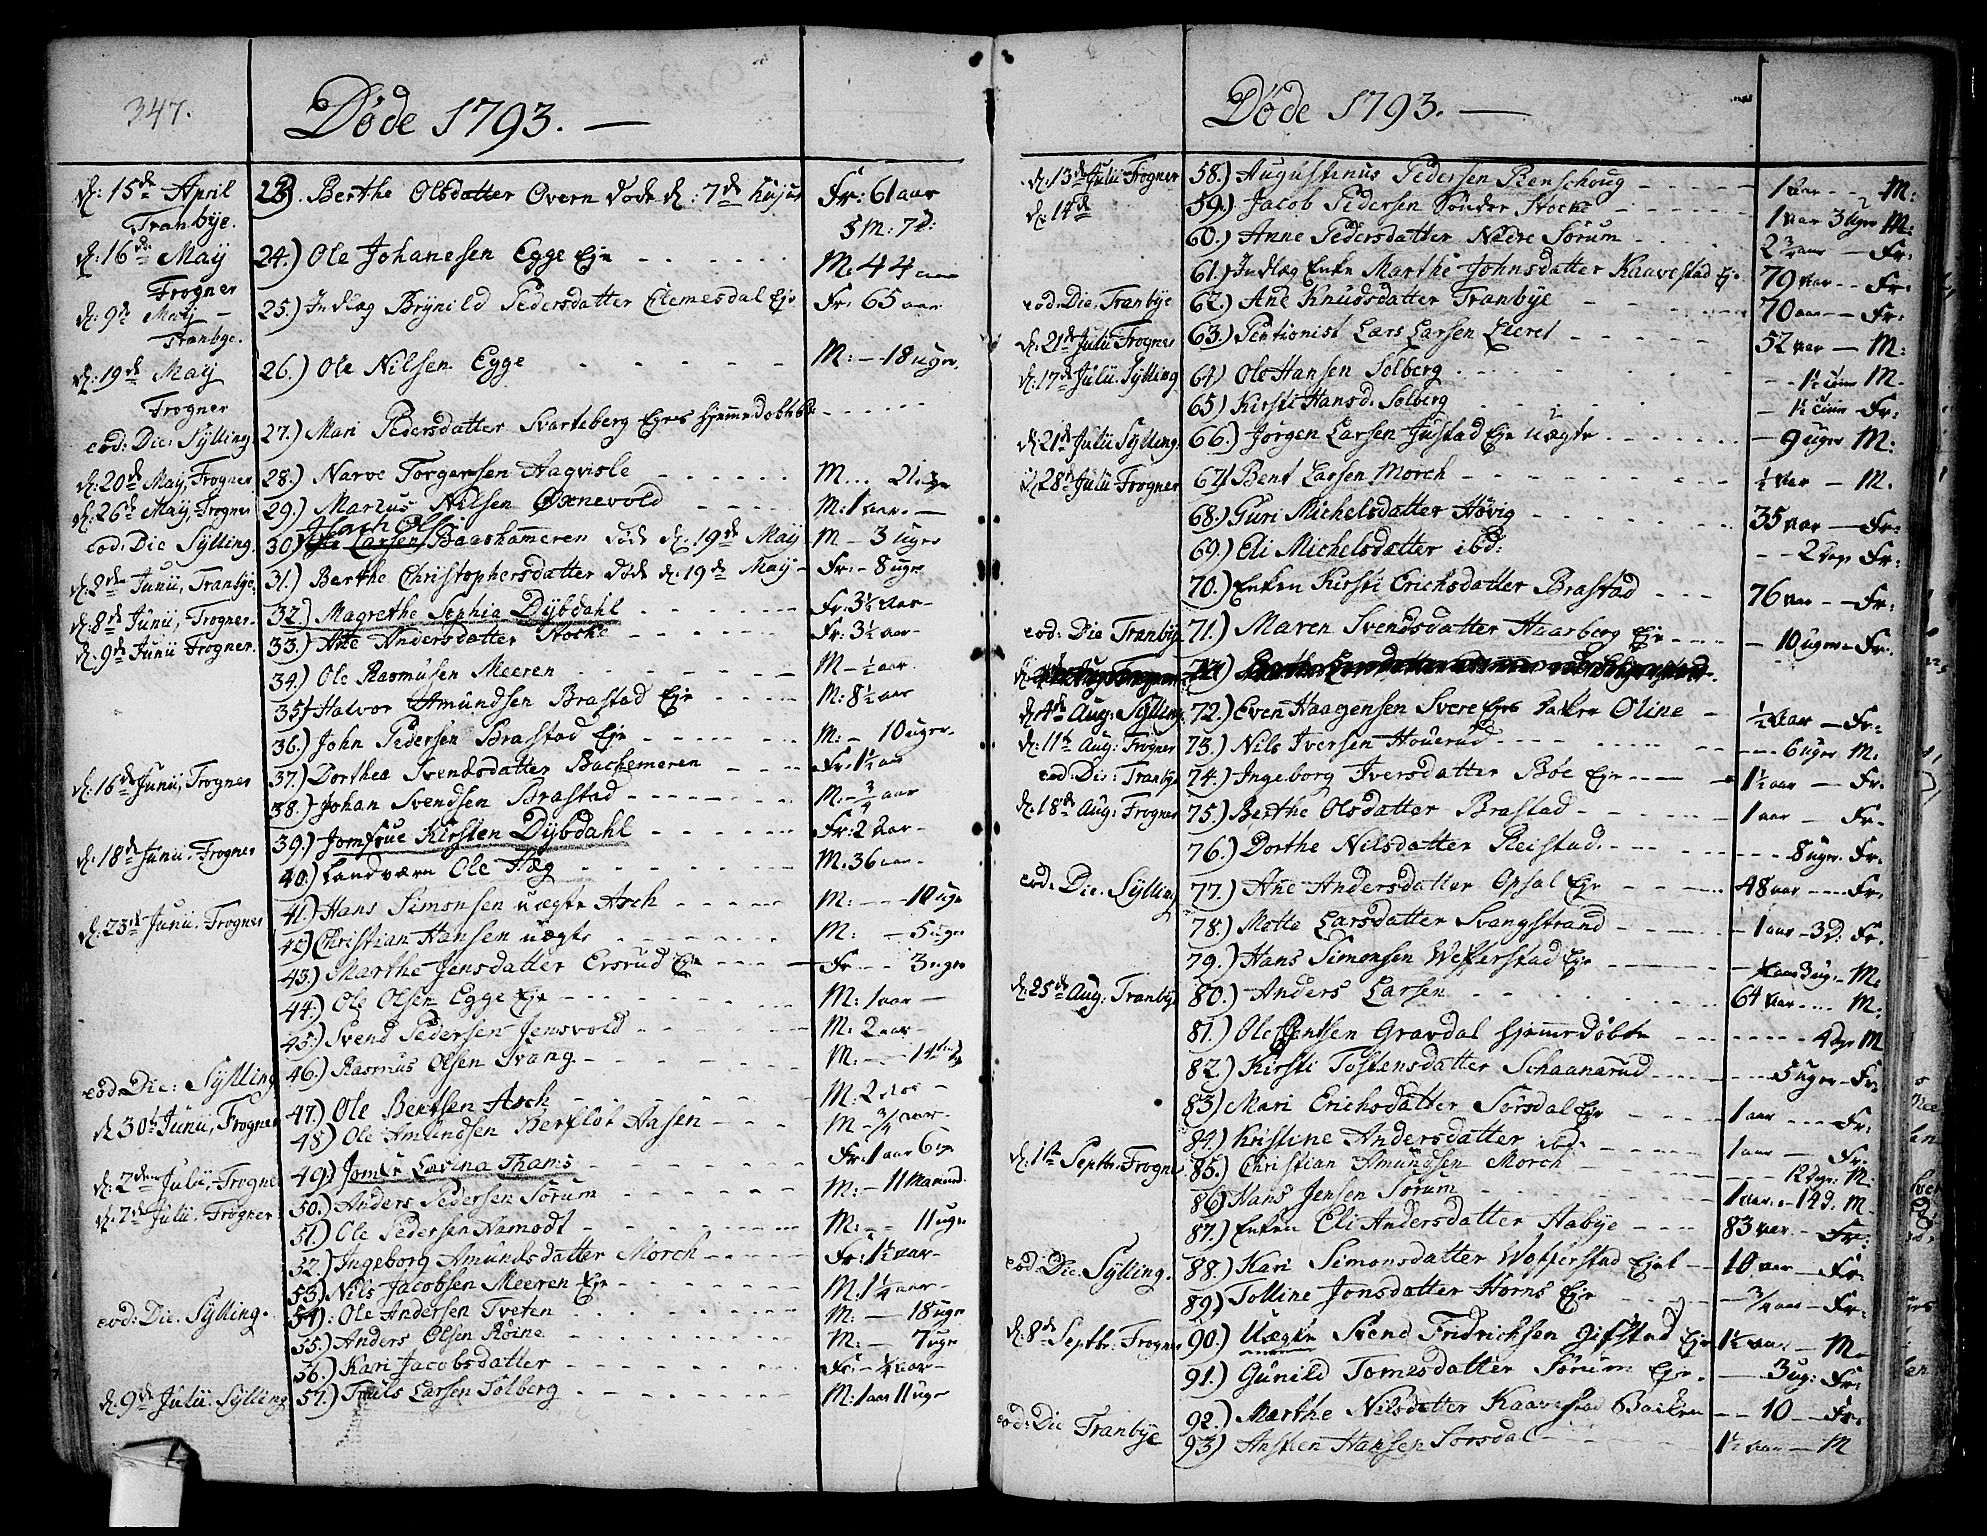 347.
Døde 1793. —
d: 15de April 23). Berthe Olsdatter Overn døde d: 7de hujus Fr: 61 aar
Tranbye. 5 M: 7 d:
d: 16de May 24.) Ole Johanesen Egge Eje M: 44 aar
Frogner
d: 9de May 25.) Indlag Brynild Pedersdatter Elemesdal Eje Fr: 65 aar
Tranbye.
d: 19de May 26.) Ole Nilsen Egge M: — 18 uger.
Frogner
eod: Die: Sylling. 27.) Mari Pedersdatter Svarteberg Ejes Hjemedøbt
d: 20de May, Frogner 28.) Narve Torgersen Aagvisle M...
d: 26de May, Frogner 29.) Marcus Nilsen Oxnevold M: 1 aar. —
eod: Die Sylling. 30) Baashammeren døde d: 19de May M — 3 uger
d: 2den Junii, Tranbye. 31.) Berthe Christophersdatter døde d: 19de May Fr: — 8 uger
d: 8de Junii, Frogner. 32.) Magrethe Sophia Dybdahl Fr: 3½ aar —
d: 9de Junii Frogner. 33.) Ane Andersdatter Stocke Fr: 3½ aar —
34.) Ole Rasmusen Meeren M — ½ aar.
35) Halvor Amundsen Brastad Eje M: 8½ aar
36.) John Pedersen Brastad Eje M: — 10 uger.
d: 16de Junii, Frogner 37.) Dorthea Svendsdatter Bachemeren Fr: 1½ aar
38.) Johan Svendsen Brastad M: — ¾ aar
39.) Jomfrue Kirsten Dybdahl Fr: 2 aar —
d: 18de Junii, Frogner 40.) Landværn Ole Hæg M: 36 aar
41.) Hans Simonsen uægte Asch M: — 10 uger
d: 23de Junii, Frogner 42) Christian Hansen uægte M: — 5 uger
43.) Marthe Jensdatter Ersrud Eje Fr — 3 uger
44.) Ole Olsen Egge Eje M: 1 aar —
45.) Svend Pedersen Jensvold M: 2 aar —
46.) Rasmus Olsen Svang M: — 14
eod: Die: Sylling 47.) Ole Bentsen Asch M: 2
d 30te Junii, Frogner 48) Ole Amundsen Berflot Aasen M — ¾ aar
49) Jomfr Lavina Thams Fr: 1 aar 6
d: 2den Julii, Frogner 50.) Anders Pedersen Sørum M: — 11 Maaned.
d: 7de Julii, Frogner 51.) Ole Pedersen Namodt M: — 11 uger
52.) Ingeborg Amundsdatter Morch Fr: 1½ aar —
53.) Nils Jacobsen Meeren Eje M: 1¼ aar —
54). Ole Andersen Tveten M: — 18 uger
eod: Die. Sylling. 55.) Anders Olsen Röine M: — 7 uger
56.) Kari Jacobsdatter Fr: — ¼ aar —
d: 9de Julii. Sylling 57.) Truls Larsen Sølberg M: 1 aar 11 uger
Døde 1793. —
d: 13de Julii Frogner 58.) Augustinus Pedersen Renschoug 1 aar — M:
d: 14de 59.) Jacob Pedersen Sønder Stocke 1 aar 3 uger M:
60.) Anne Pedersdatter Neere Sørum 2¾ aar — Fr:
61.) Indlæg Enke Marthe Johnsdatter Kaavestad Eje 79 aar — Fr:
eod: Die. Tranbye 62.) Ane Knudsdatter Tranbye 70 aar — Fr:
d: 21de Julii Frogner 63.) Pentionist Lars Larsen Lieret 52 aar — M:
d: 17de Julii. Sylling 64) Ole Hansen Solberg M.
65) Kirsti Hansd: Solberg Fr:
d: 21de Julii Sylling. 66.) Jørgen Larsen Justad Eje uægte — 9 uger M:
d: 28de Julii Frogner 67) Bent Larsen Morch ½ aar — M.
68.) Guri Michelsdatter Høvig 35 aar — Fr:
69.) Eli Michelsdatter ibd: 2 dage Fr:
70.) Enken Kirsti Erichsdatter Brastad 76 aar — Fr:
eod: Die Tranbye 71.) Maren Svendsdatter Haarberg Eje — 10 uger — Fr.
d: 4de Aug: Sylling. 72.) Even Haagensen Svere Ejes Datter Oline ½ aar — Fr.
d: 11te Aug: Frogner 73.) Nils Iversen Houerud 6 uger M.
eod: Die: Tranbye 74.) Ingeborg Iversdatter Bøe Eje 1½ aar — Fr.
d: 18de Aug: Frogner 75.) Berthe Olsdatter Brastad 1 aar — Fr.
76.) Dorthe Nilsdatter Reistad. 8 uger. Fr.
eod: Die. Sylling 77.) Ane Andersdatter Opsal Eje 48 aar — Fr:
78.) Motte Larsdatter Svangstrand 1 aar — 3 d: Fr.
79.) Hans Simonsen Wefferstad Eje aar 3 ug: M.
d: 25de Aug: Tranbye 80.) Anders Larsen 64 aar M:
81.) Ole Bentsen Gravdal Hjemedøbte M
82.) Kirsti Tostensdatter Schaanarud 5 uger — Fr:
83) Mari Erichsdatter Sørsdal Eje 1 aar — Fr:
84) Kristine Andersdatter ibd: 1 aar — Fr.
d: 1te Septbr: Frogner 85.) Christian Amundsen Morch 12 dage. M.
86) Hans Jensen Sørum 1 aar — 14 d. M.
87.) Enken Eli Andersdatter Aabye 83 aar — Fr:
eod: Die. Sylling. 88.) Kari Simonsdatter Wefferstad Ejet 10 aar — Fr
89.) Tolline Jonsdatter Horns Eje ¾ aar — Fr:
d: 8de Septbr: Frogner 90.) Uægte Svend Fridrichsen Gifstad Eje 1½ aar — M.
91.) Gunild Tomesdatter Sørum Eje. — 3 ug: Fr:
92.) Marthe Nilsdatter Kaavestad Backen — 10 — Fr:
eod: Die Tranbye 93) Ansten Hansen Sorsdal 1½ aar — M